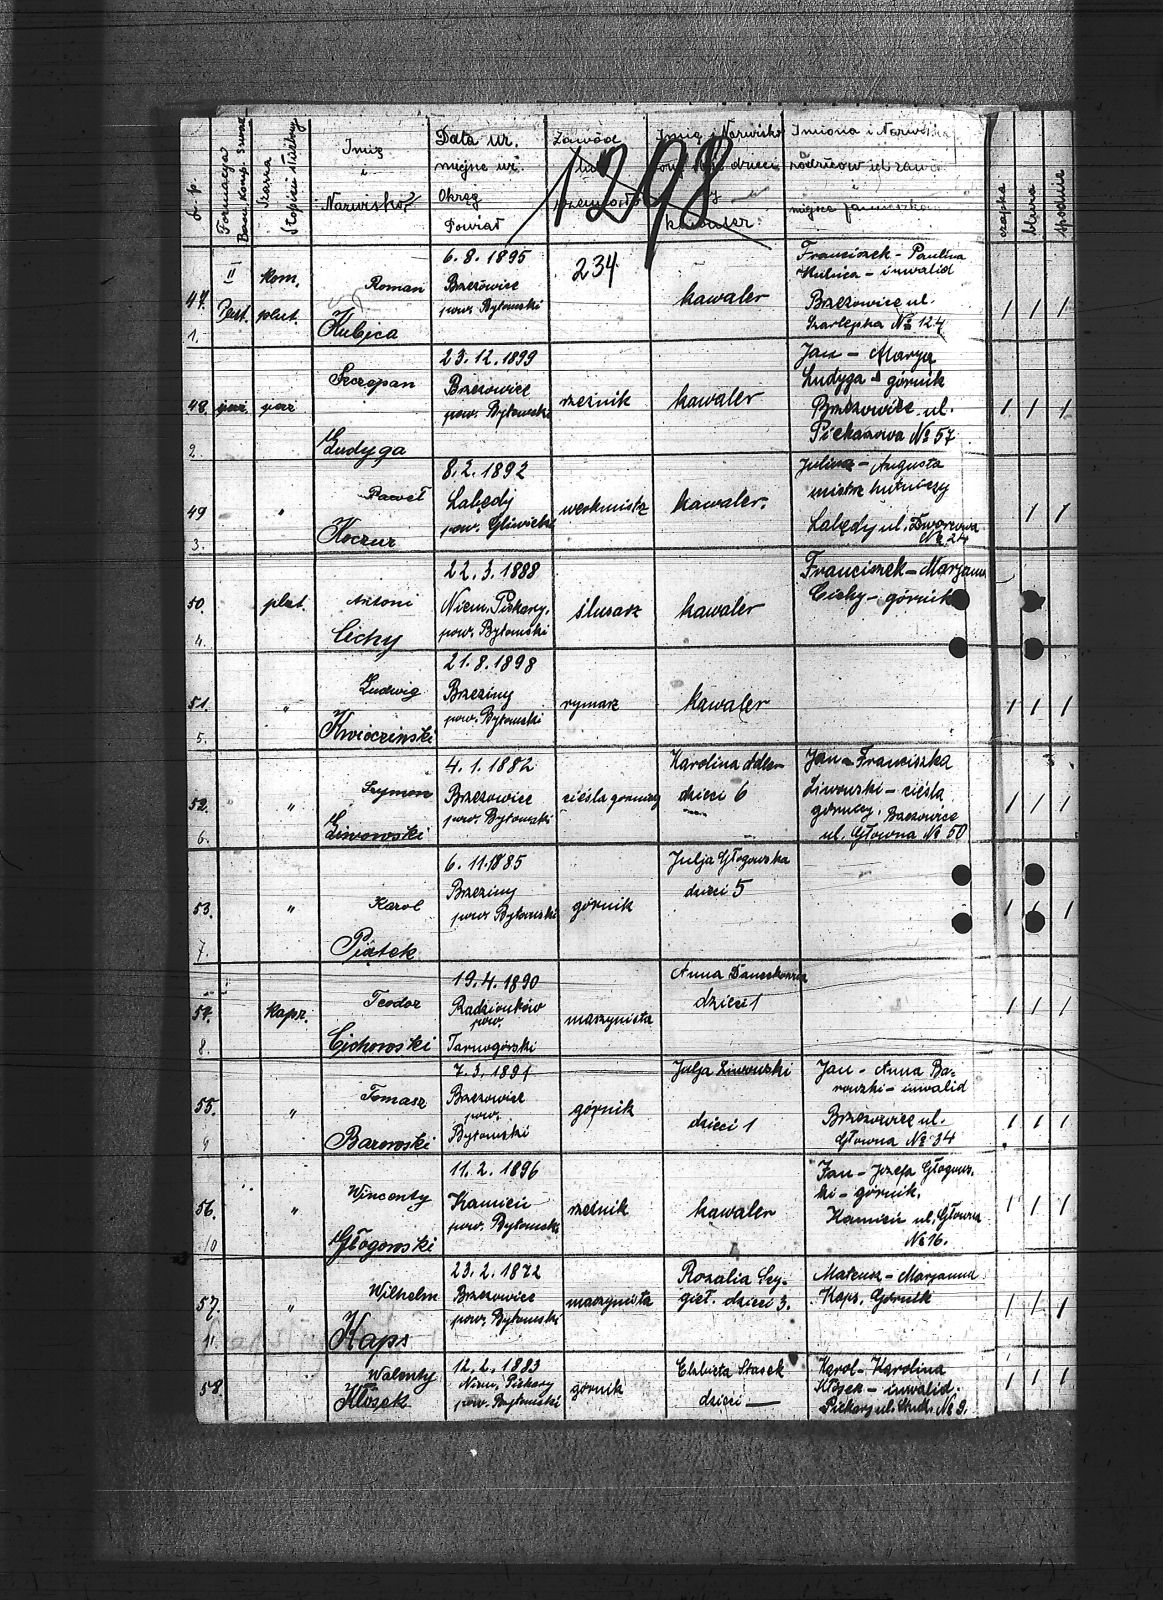 L. p.
Formacya
Baon Komp. Żuraw
Szarża
Stopień służbowy
Imię
i
Nazwisko
Data ur.
miejsce ur.
Okręg
Powiat
Zawód
Imię i Nazwisko
dzieci
kawaler
Imiona i Nazwiska
rodziców
miejsce
czapka
bluza
spodnie
1298
234
47.
1.
II
kom.
plut.
Roman
Kubica
6. 8. 1895
Brzezowice
pow. Bytomski
kawaler
Franciszek - Paulina
Kubica - inwalid
Brzezowice ul.
Szarlejska № 124
1 1 1
48.
2.
Szczepan
Ludyga
23. 12. 1899
Brzezowice
pow. Bytomski
rzeźnik
kawaler
Jan - Marya
Ludyga - górnik
Brzezowice ul.
Piekarowa № 57
1 1 1
49
3.
"
Paweł
Koczur
8. 2. 1892
Łabędy
pow. Gliwicki
werkmistz
kawaler.
Julius - Augusta
mistrz hutniczy
Łabędy ul. Dworcowa
№ 24
1 1
50.
4.
plut.
Antoni
Cichy
22. 3. 1888
Niem. Piekary.
pow. Bytomski
ślusarz
kawaler
Franciszek - Marjanna
Cichy - górnik
51.
5.
"
Ludwig
Kwioczinski
21. 8. 1898
Brzeziny
pow. Bytomski
rymarz
kawaler
1 1 1
52.
6.
"
Szymon
Liwowski
4. 1. 1882
Brzezowice
pow. Bytomski
cieśla górniczy
Karolina Adler
dzieci 6
Jan - Franciszka
Liwowski - cieśla
górniczy. Brzezowice
ul. Główna № 50
1 1 1
53.
7.
"
Karol
Piątek
6. 11. 1885
Brzeziny
pow. Bytomski
górnik
Julja Głogowska
dzieci 5
1 1 1
54.
8.
Kapr.
Teodor
Cichowski
19. 4. 1890
Radzionków
pow.
Tarnogórski
maszynista
Anna
dzieci 1
1 1 1
55.
9
"
Tomasz
Barowski
7. 3. 1891
Brzezowice
pow.
Bytomski
górnik
Julja Liwowski
dzieci 1
Jan - Anna Ba-
rowski - inwalid
Brzezowice ul.
Główna № 34
1 1 1
56.
10
"
Wincenty
Głogowski
11. 2. 1896
Kamień
pow. Bytomski
rzeźnik
kawaler
Jan - Jozefa Głogows-
ki - górnik.
Kamień ul. Główna
№ 16.
1 1 1
57.
11.
"
Wilhelm
Kaps
23. 2. 1872
Brzezowice
pow. Bytomski
maszynista
Rozalia Szy-
gieł. dzieci 3.
Mateusz - Marjanna
Kaps. Górnik
1 1 1
58.
Walenty
Kłosek
12. 2. 1883
Niem. Piekary
pow. Bytomski
górnik
Elżbieta Stasek
dzieci —
Karol - Karolina
Kłosek - inwalid.
Piekary ul. № 9.
1 1 1